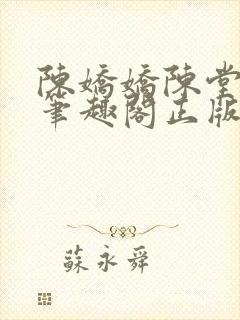 陳嬌嬌陳堂
筆趣閣正版
蘇永舜